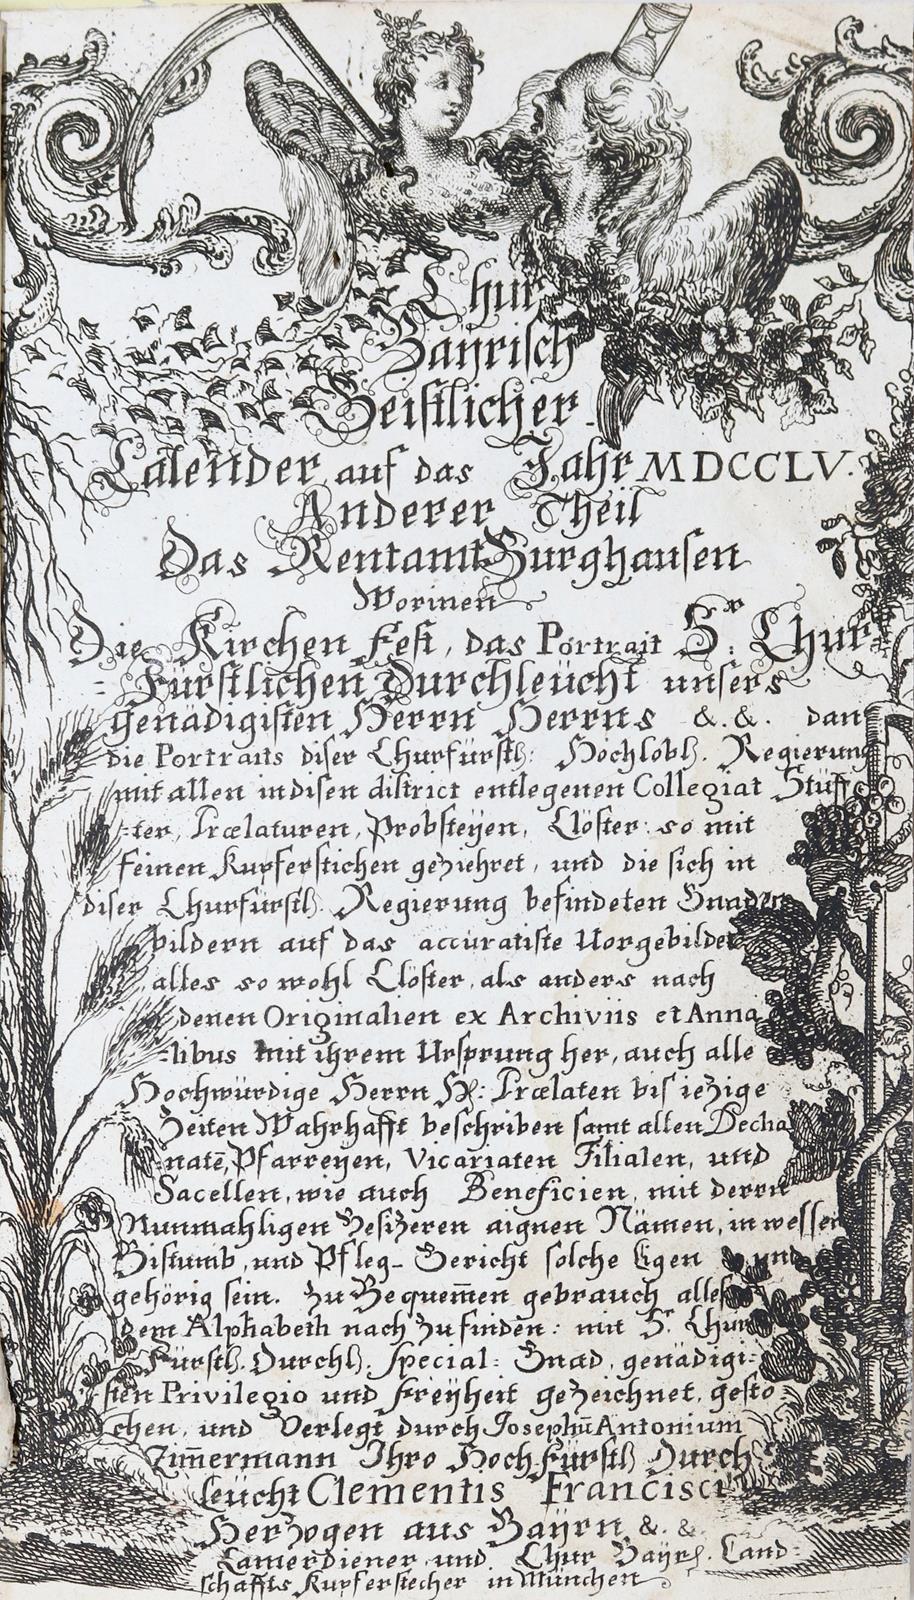 Chur
Bayrisch
Geistlicher
Calender auf das Jahr MDCCLV.
Anderer Theil
Das Rentamt Burghausen
Worinen
Die Kirchen Fest, das Portrait Sr. Chur
=Fürstlichen Durchleücht unsers
genädigisten Herrn Herrns &.&. dan
die Portraits diser Churfürstl: Hochlobl. Regierung
mit allen in disen district entlegenen Collegiat Stüff
=ter, Prælaturen, Probsteÿen, Clöster so mit
Feinen Kupferstichen geziehret, und die sich in
diser Churfürstl. Regierung befindeten Gnaden
bildern auf das accuratiste Vorgebildet
alles so wohl Clöster, als anders nach
denen Originalien ex Archiviis et Anna
=libus mit ihrem Ursprung her, auch alle
Hochwürdige Herrn H: Prælaten bis iezige
Zeiten Wahrhafft beschriben samt allen Decha
=natē, Pfarreyen, Vicariaten Filialen, und
Sacellen, wie auch Beneficien, mit derrn
Nunmahligen Besizeren aignen Namen, in wessen
Bistumb, und Pfleg-Gericht solche ligen und
gehörig sein. Zu Bequem̄en gebrauch alles
dem Alphabeth nach Zu finden: mit Sr Chur
Fürstl. Durchl. special: Gnad, genädigi=
sten Privilegio und Freÿheit gezeichnet, gesto
chen, und Verlegt durch Josephū Antonium
Zim̄ermann Ihro Hoch Fürstl Durch
leücht Clementis Francisci
Herzogen aus Bayrn &. &.
Camerdiener und Chur Bayrs. Land=
schaffts Kupferstecher in München